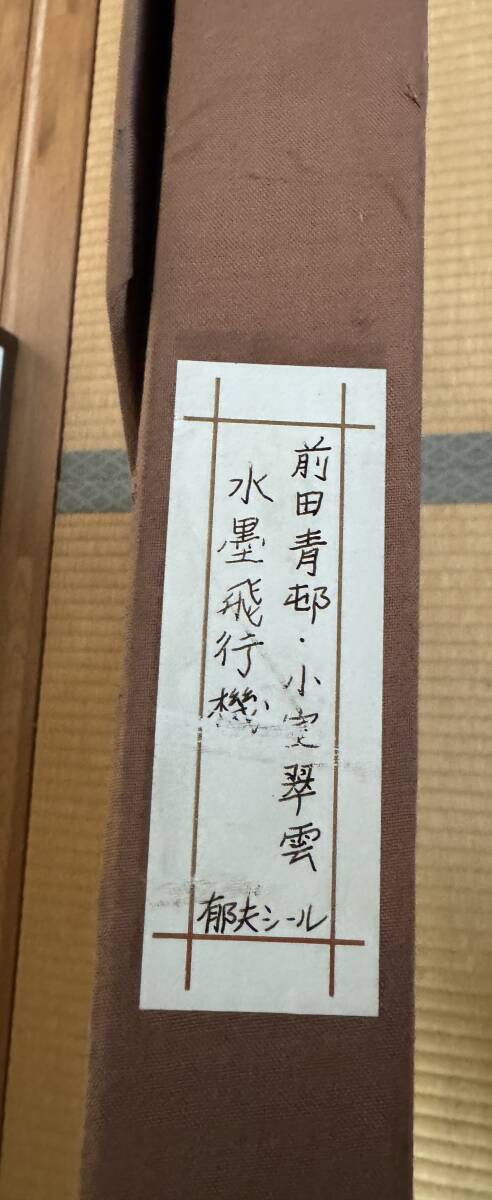 前田青邨・小室翠雲
水墨飛行機
郁夫シール